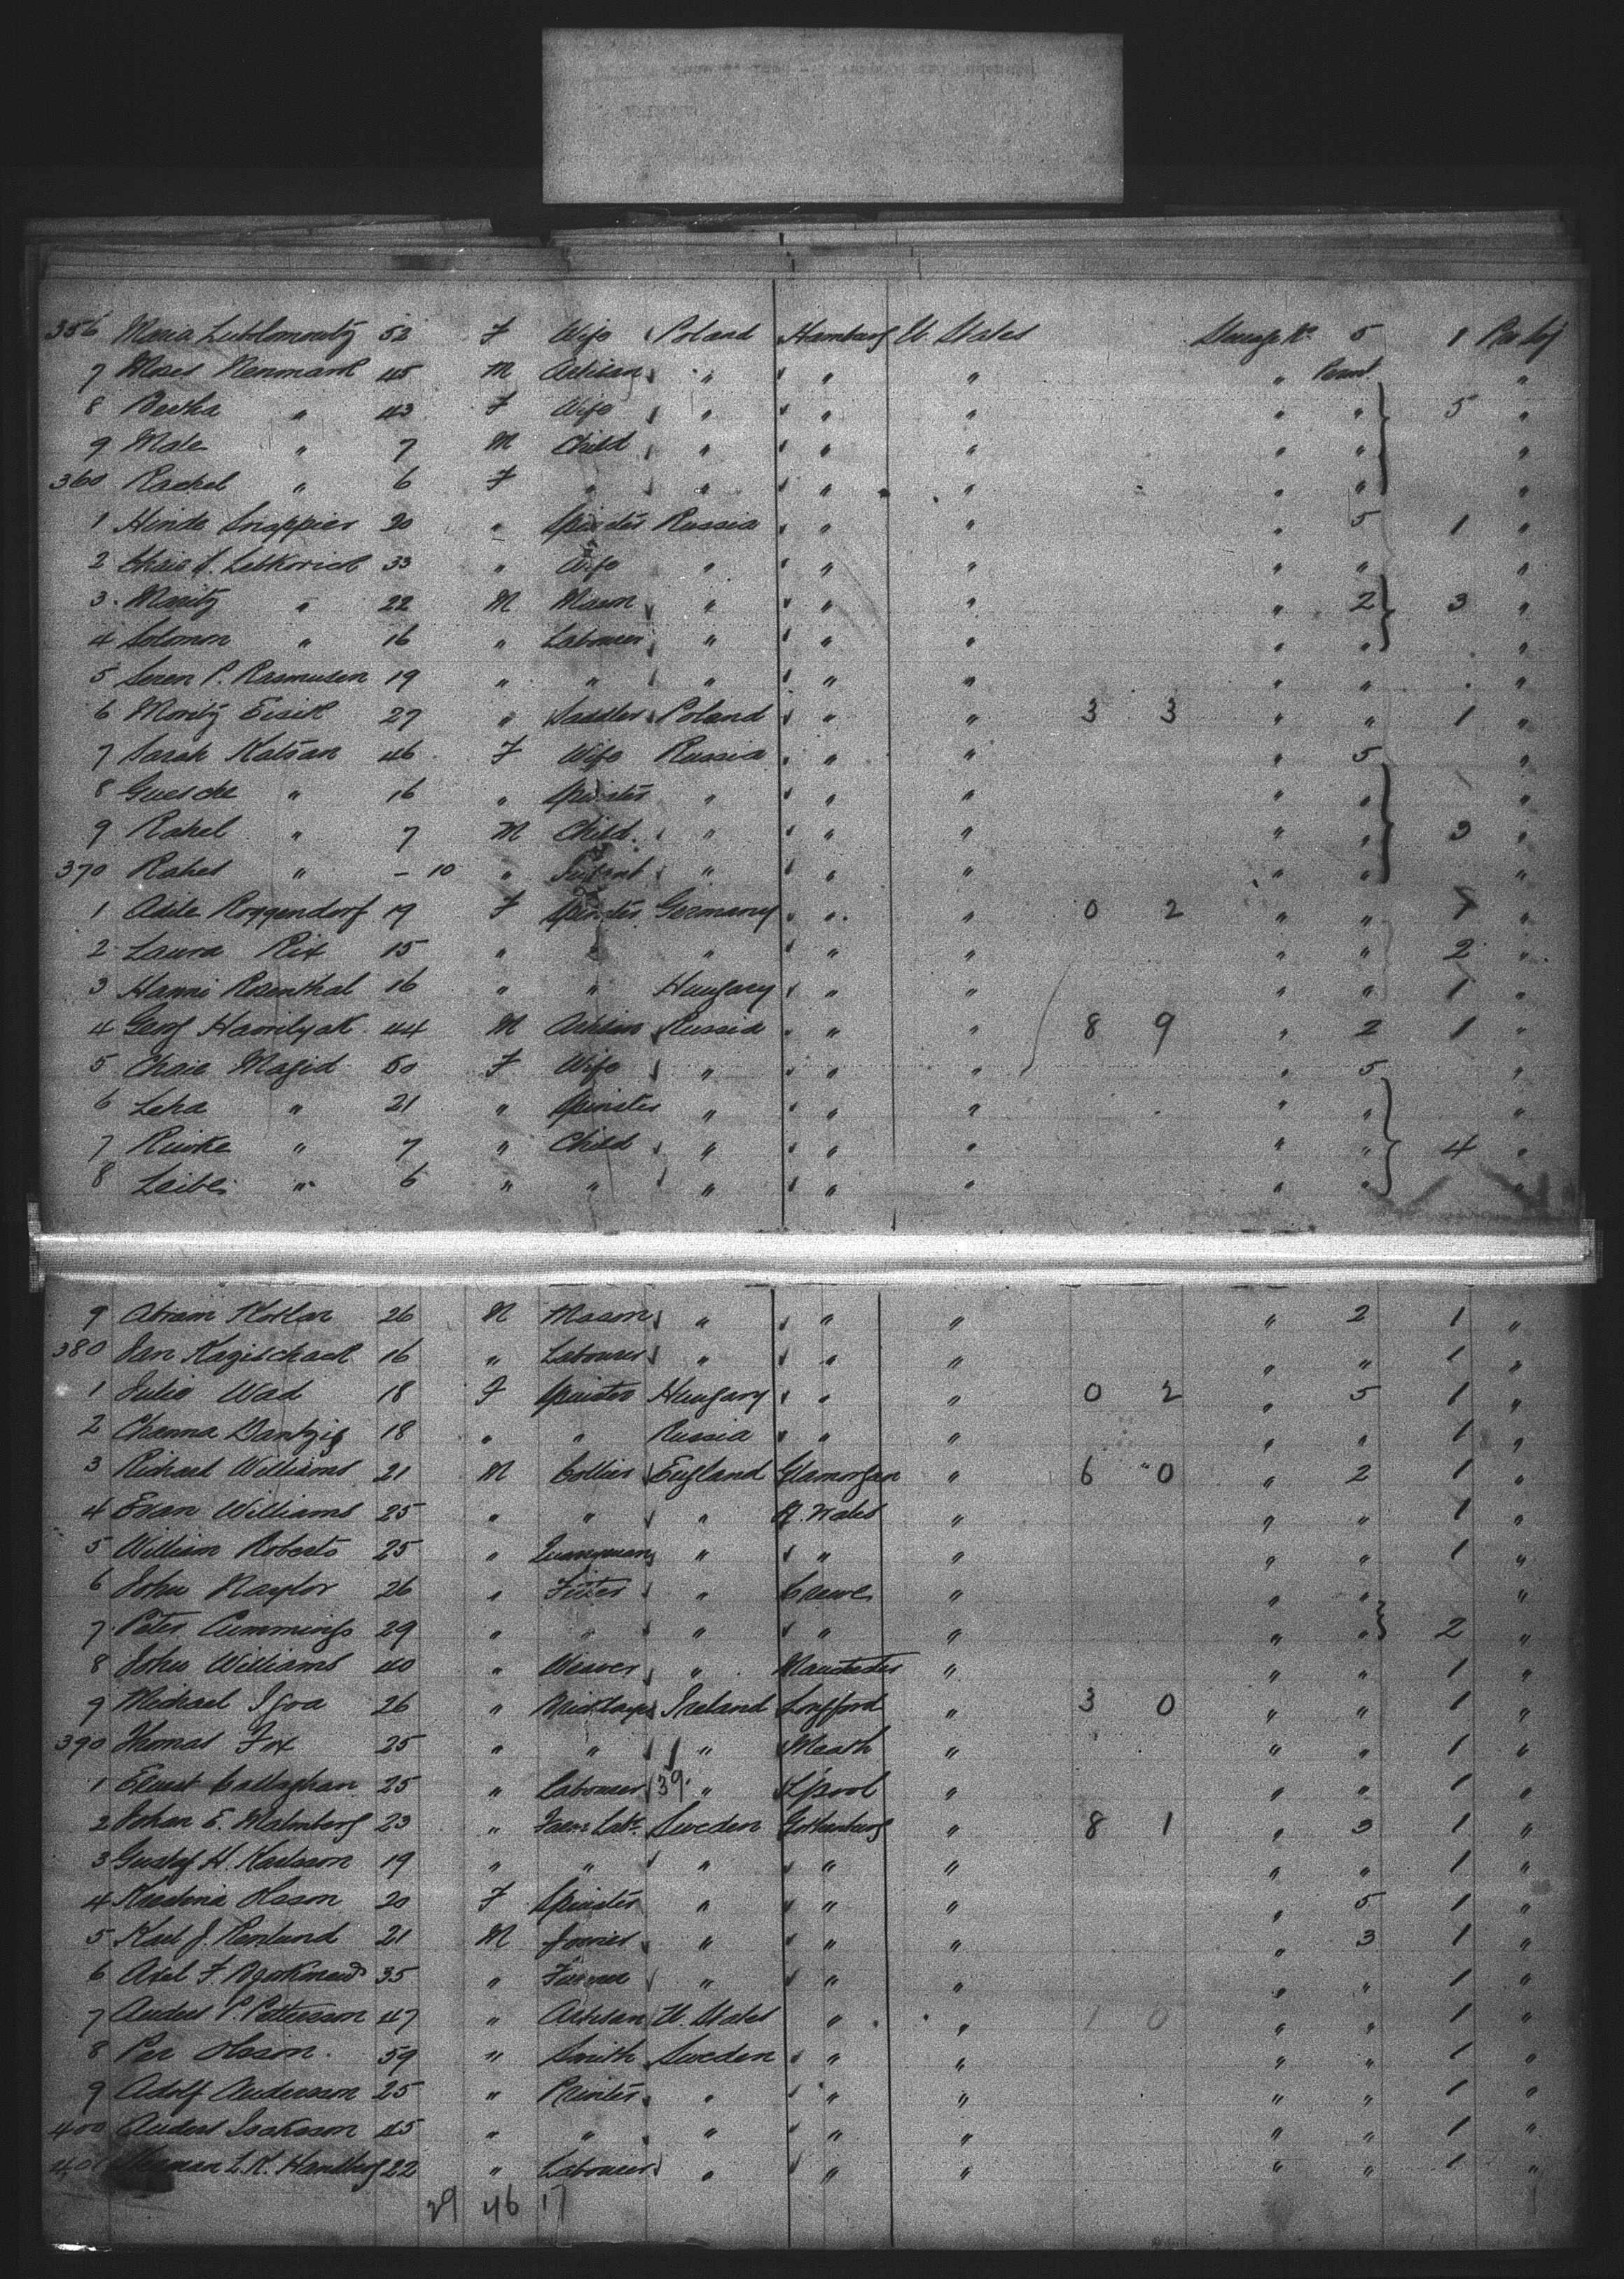 356 Maria 52 F Wife Poland Hamburg U. States Steerage 5 1
7 Moses 45 M Artisan " " " " "
8 Bertha " 43 F Wife " " " " " 5 "
9 Male " 7 M Child " " " " " "
360 Rachel " 6 F " " " " " " "
1 Hinde 20 " Spinster Russia " " " 5 1 "
2 33 " Wife " " " " " "
3 Moritz " 22 M Mason " " " " 2 3 "
4 Solomon " 16 " Labourer " " " " " "
5 Seren P. Rasmusen 19 " " " " " " " "
6 Moritz Eisik 27 " Saddler Poland " " 3 3 " " 1 "
7 Sarah 46 F Wife Russia " " " 5 "
8 " 16 " Spinster " " " " " "
9 Rahel " 7 M Child " " " " " 3 "
370 " - 10 " Infant " " " " " "
1 Adele Roggendorf 19 F Spinster Germany " " 0 2 " " 1 "
2 Laura Rix 15 " " " " " " " 2 "
3 Hanni Rosenthal 16 " " Hungary " " " " 1 "
4 44 M Artisan Russia " " 8 9 " 2 1 "
5 Chaie Magid 50 F Wife " " " " 5 "
6 Leha " 21 " Spinster " " " " " "
7 Riwke " 7 " Child " " " " " 4 "
8 Leibe " 6 " " " " " " " "
9 Abram Kotlar 26 M Mason " " " " 2 1 "
380 Jan 16 " Labourer " " " " " 1 "
1 Julie Wad 18 F Spinster Hungary " " 0 2 " 5 1 "
2 Channa Dantzig 18 " " Russia " " " " 1 "
3 Richard Williams 21 M Collier England Glamorgan " 6 0 " 2 1 "
4 Evan Williams 25 " " " N. Wales " " " 1 "
5 William Roberts 25 " Quarryman " " " " " 1 "
6 John Naylor 26 " Fitter " Crewe " " " "
7 Peter Cummings 29 " " " " " " " 2 "
8 John Williams 40 " Weaver " Manchester " " " 1 "
9 Michael Igoa 26 " Ireland Longford " 3 0 " " 1 "
390 Thomas Fox 25 " " " Meath " " " 1 "
1 Ernest Callaghan 25 " Labourer 39 " L'pool " " " 1 "
2 Johan E. Malmberg 23 " Farm Lab. Sweden Gothenburg " 8 1 " 3 1 "
3 Gustaf H. Karlsson 19 " " " " " " " 1 "
4 Olsson 20 F Spinster " " " " 5 1 "
5 Karl J. Renlund 21 M " " " " 3 1 "
6 Axel F. 35 " " " " " " 1 "
7 Anders P. Pettersson 47 " Artisan U. States " " 1 0 " " 1 "
8 Per Olsson 59 " Smith Sweden " " " " 1 "
9 Adolf Andersson 25 " Printer " " " " " 1 "
400 Anders Isaksson 45 " " " " " " " 1 "
401 Herman L. K. 22 " Labourer " " " " " 1 "
29 46 17